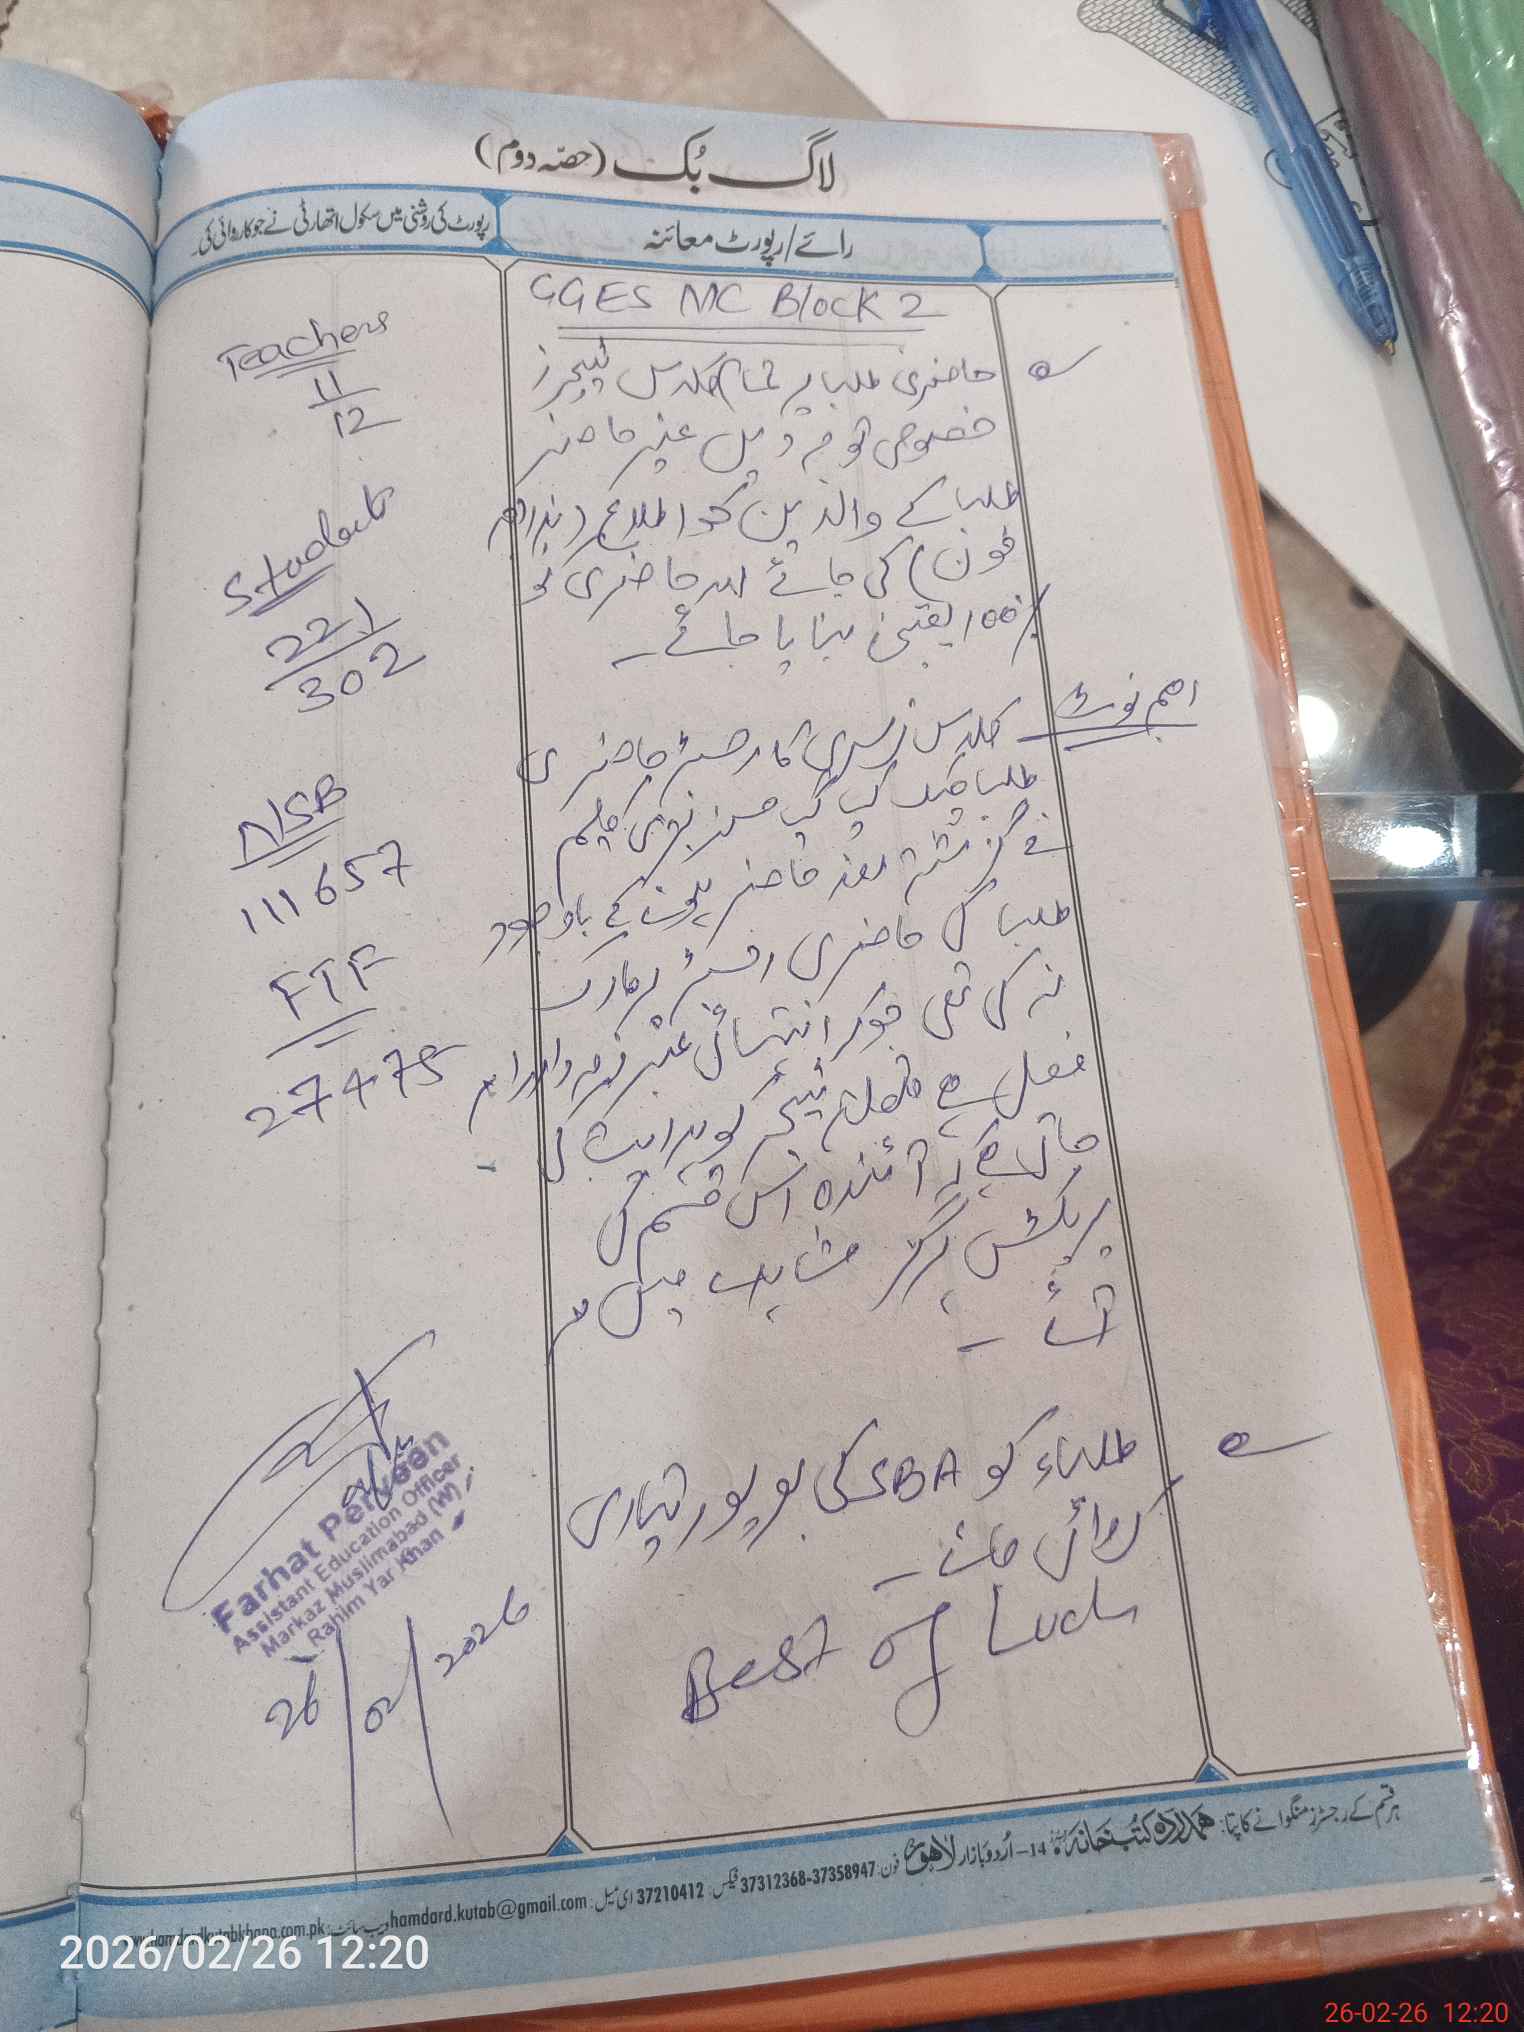 لاگ بُک (حصّہ دوم)
رائے/رپورٹ معائنہ
رپورٹ کی روشنی میں سکول اتھارٹی نے جو کاروائی کی۔
GGES MC Block 2
حاضری طلبا پر تمام کلاس ٹیچرز
خصوصی توجہ دیں غیر حاضر
طلبا کے والدین کو اطلاع (بذریعہ
فون) کی جائے اور حاضری کو
100% یقینی بنایا جائے۔
اہم نوٹ
کلاس نرسری کا رجسٹر حاضری
طلبا چیک کیا گیا مسز
نے گزشتہ روز حاضر ہونے کے باوجود
طلبا کی حاضری رجسٹر پر مارک
نہ کی تھی جوکہ انتہائی غیر ذمہ دارانہ
فعل ہے ٹیچر کو ہدایت کی
جاتی ہے کہ آئندہ اس قسم کی
پریکٹس ہرگز مشاہدے میں نہ
آئے۔
طلباء کو SBA کی بھرپور تیاری
کروائی جائے۔
Best of Luck
Teachers
11
12
Students
221
302
NSB
111657
FTF
27475
Farhat Perveen
Assistant Education Officer
Markaz Muslimabad (W)
Rahim Yar Khan
26/02/2026
ہر قسم کے رجسٹرز منگوانے کا پتا: ہمدرد کتب خانہ 14-اُردو بازار لاہور فون: 37312368-37358947 فیکس: 37210412 ای میل: hamdard.kutab@gmail.com ویب سائٹ: www.hamdardkutabkhana.com.pk
2026/02/26 12:20
26-02-26 12:20